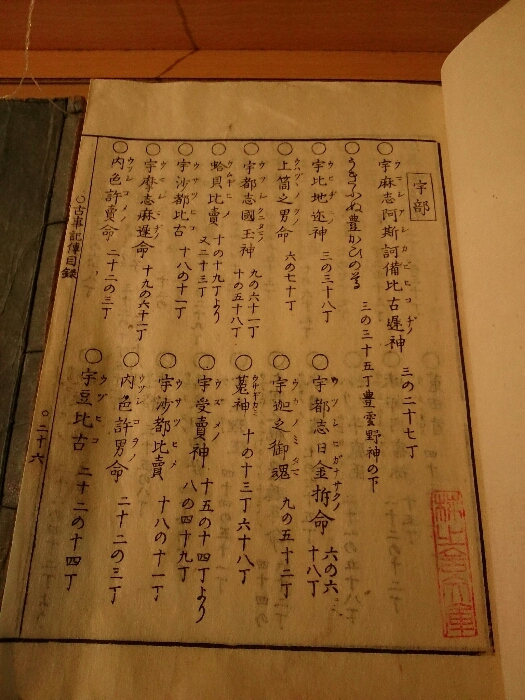 宇部
○宇麻志阿斯訶備比古遅神 三の二十七丁
○うきふぬ豊かひの尊 三の三十五丁豊雲野神の下
○宇比地迩神 三の三十八丁
○宇都志日金拆命 六の六十八丁
○上筒之男命 六の七十丁
○宇迦之御魂 九の五十二丁
○宇都志國玉神 九の六十一丁 十の五十八丁
○菟神 十の十三丁 六十八丁
○蛤貝比賣 十の十九丁より 又二十三丁
○宇受賣神 八の四十九丁 十五の十四丁より
○宇沙都比古 十八の十一丁
○宇沙都比賣 十八の十一丁
○宇摩志麻遅命 十九の六十一丁
○内色許男命 二十二の三丁
○内色許賣命 二十二の三丁
○宇豆比古 二十二の十四丁
○古事記傳目録 ○二十六